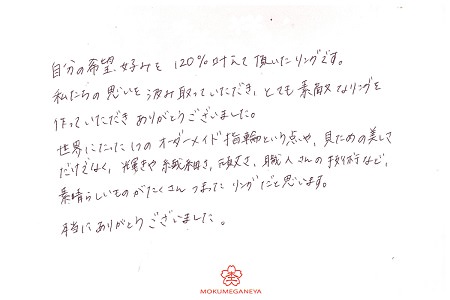 自分の希望、好みを 120%叶えて頂いたリングです。
私たちの思いを汲み取っていただき、とても素敵なリングを
作っていただき ありがとうございました。
世界にたった1つの オーダーメイド指輪という点や、見ための美しさ
だけでなく、輝きや繊細さ、職人さんの技術など、
素晴らしいものがたくさん つまった リングだと思います。
本当にありがとうございました。
MOKUMEGANEYA